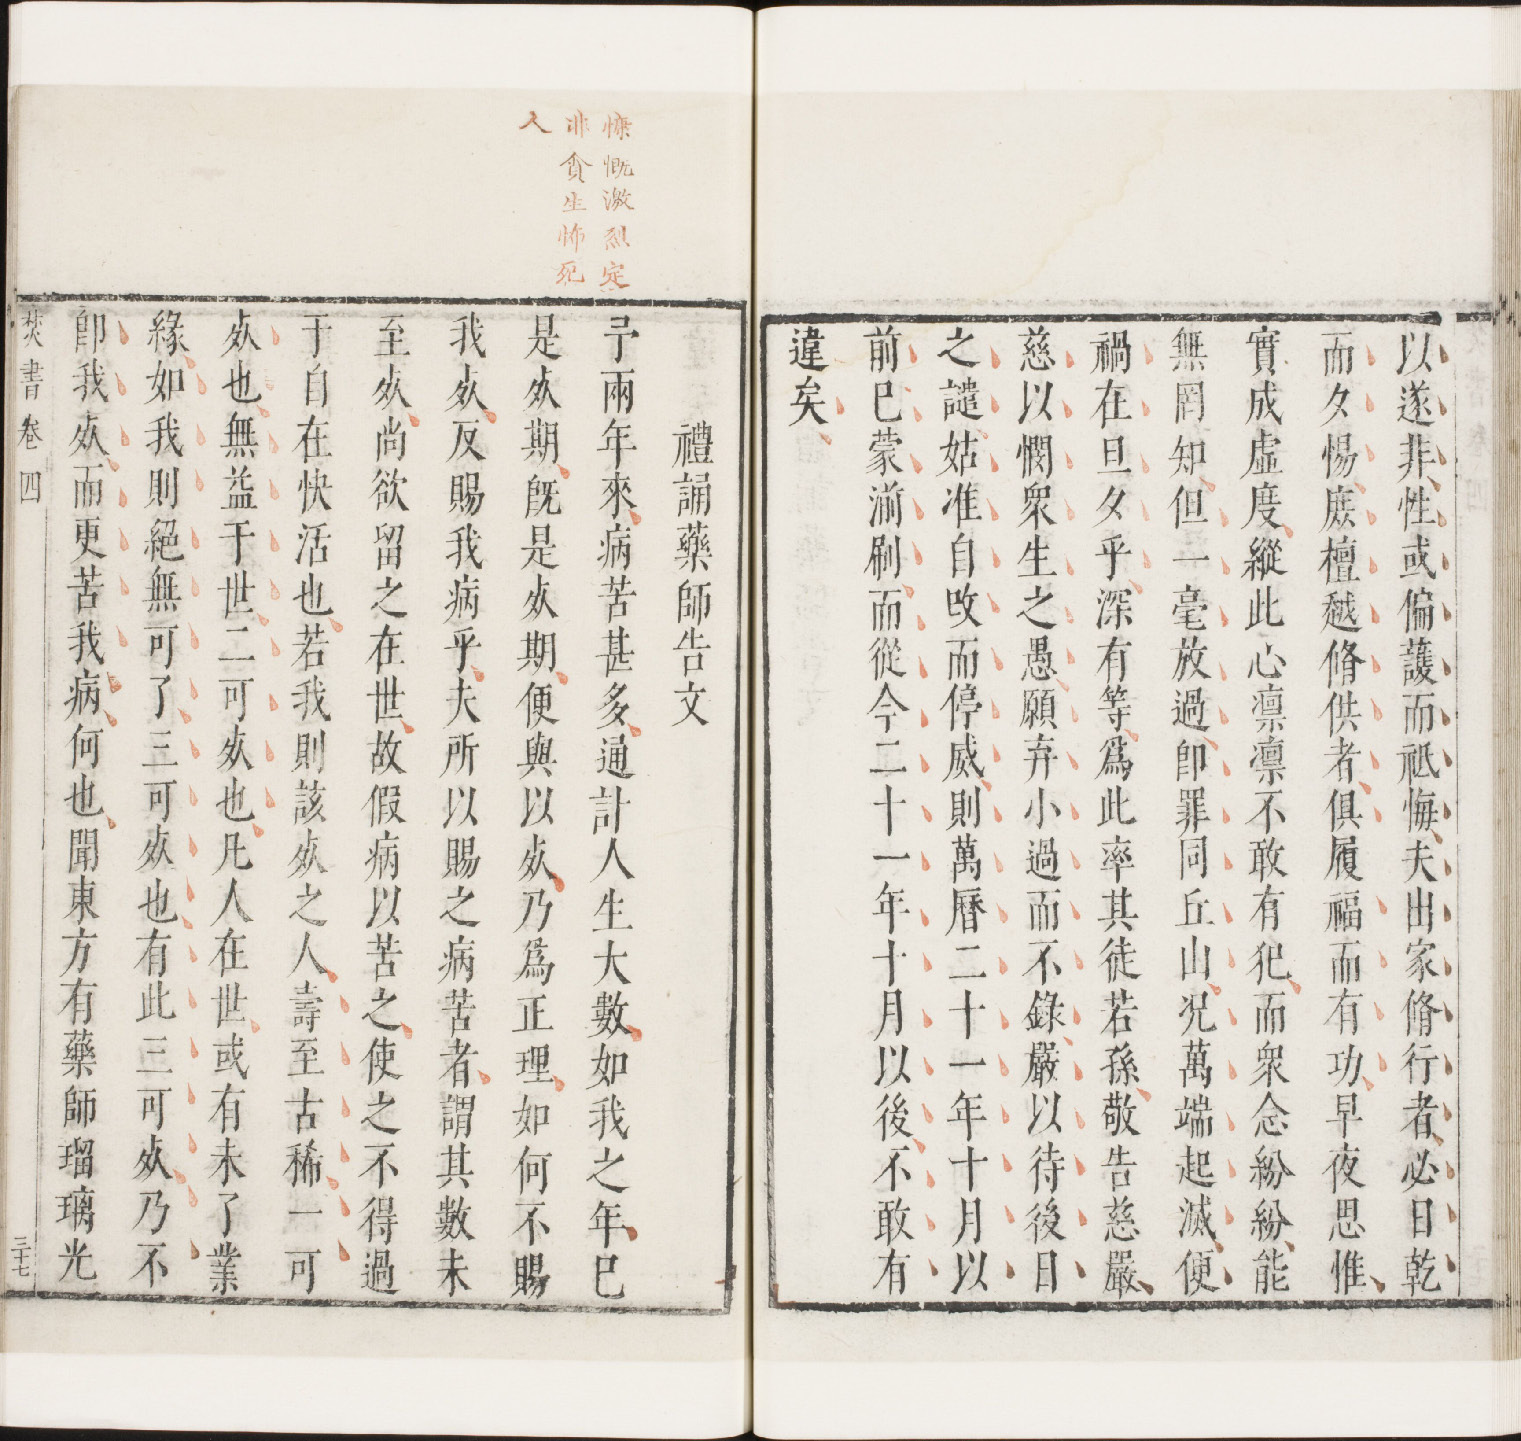 以遂非性或偏護而祗悔夫出家脩行者必日乾
而夕惕庶檀越脩供者俱履福而有功早夜思惟
實成虛度縱此心凛凛不敢有犯而衆念紛紛能
無罔知但一毫放過卽罪同丘山况萬端起滅便
禍在旦夕乎深有等爲此率其徒若孫敬告慈嚴
慈以憫衆生之愚願弃小過而不錄嚴以待後日
之譴姑准自改而停威則萬曆二十一年十月以
前已蒙湔刷而從今二十一年十月以後不敢有
違矣
慷慨激烈定
非貪生怖死
人
禮誦藥師告文
予兩年來病苦甚多通計人生大數如我之年已
是死期旣是死期便與以死乃爲正理如何不賜
我死反賜我病乎夫所以賜之病苦者謂其數未
至死尚欲留之在世故假病以苦之使之不得過
于自在快活也若我則該死之人壽至古稀一可
死也無益于世二可死也凡人在世或有未了業
緣如我則絕無可了三可死也有此三可死乃不
卽我死而更苦我病何也聞東方有藥師瑠璃光
焚書卷四
三十七